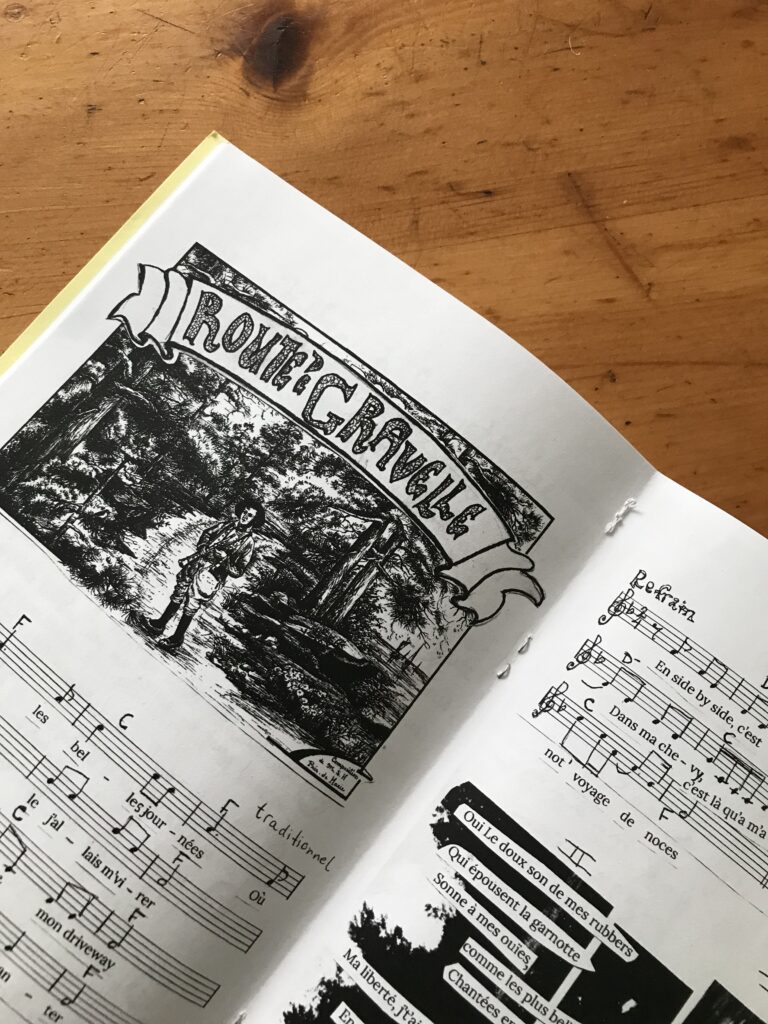 ROUTE GRAVELLE
F
les bel - les jour - nées Où
C
F
traditionnel
le j'al - lais m'vi - rer
C
F
mon driveway
F
ter
F
Refrain
En side by side, c'est
D-
Dans ma che - vy, c'est là qu'a m'a
C
C
not' voyage de noces
F
II
Oui Le doux son de mes rubbers
Qui épousent la garnotte
Sonne à mes ouïes,
comme les plus bel
Chantées en
Ma liberté, j't'ai
En